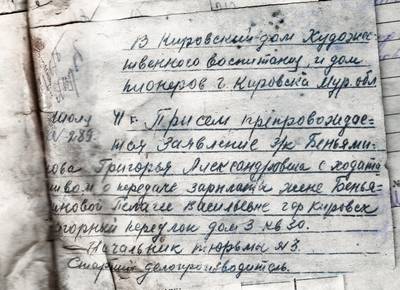 В Кировский дом Художес-
твенного воспитания, и дом
пионеров г. Кировска Мур. обл
Июлу 41 г. Присем препровождае-
№ 289. тся Заявление з/к Беньями-
нова Григорья Александровича с ходата
ством о передаче зарплаты жене Бенья-
миновой Пелагее Васильевне гор Кировск
Нагорный переулок дом 3 кв 30.
Начальник тюрьмы № 3.
Старший делопроизводитель.